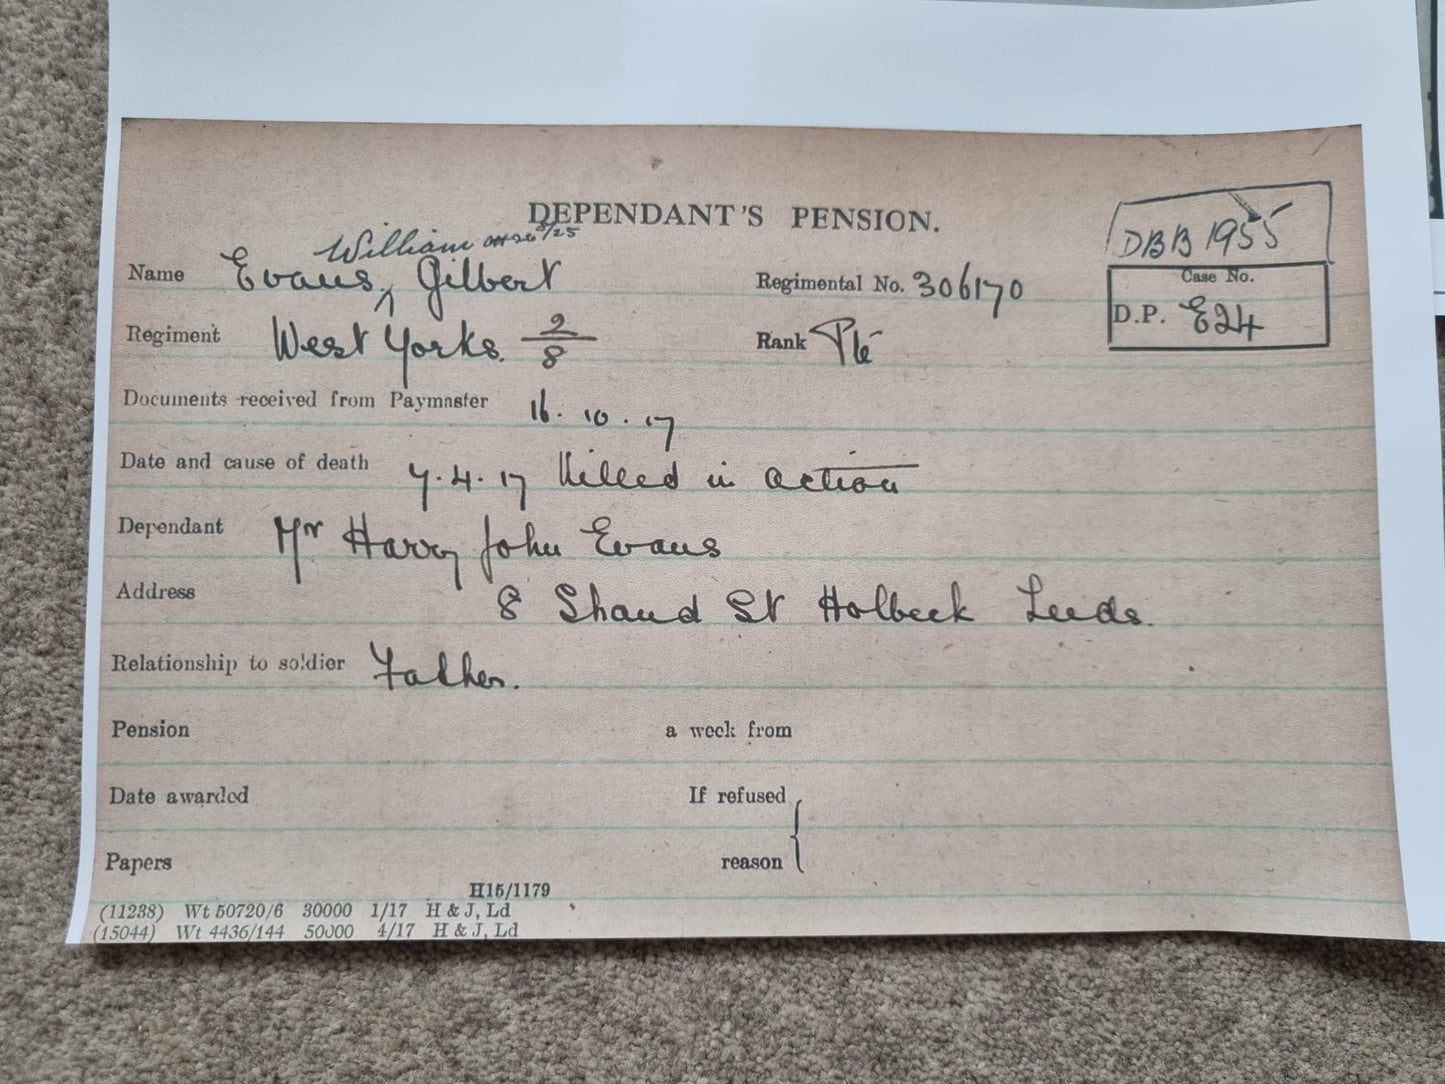 DEPENDANT'S PENSION.
DBB 1955
William
Name Evans, ^ Gilbert Regimental No. 306170
Case No.
D.P. E24
Regiment West Yorks. 2/8 Rank Pte
Documents received from Paymaster 16. 10. 17
Date and cause of death 7.4.17 Killed in action
Dependant Mr Harry John Evans
Address 8 Shand St Holbeck Leeds.
Relationship to soldier Father.
Pension a week from
Date awarded If refused
Papers reason
H15/1179
(11238) Wt 50720/6 30000 1/17 H & J, Ld
(15044) Wt 4436/144 50000 4/17 H & J, Ld